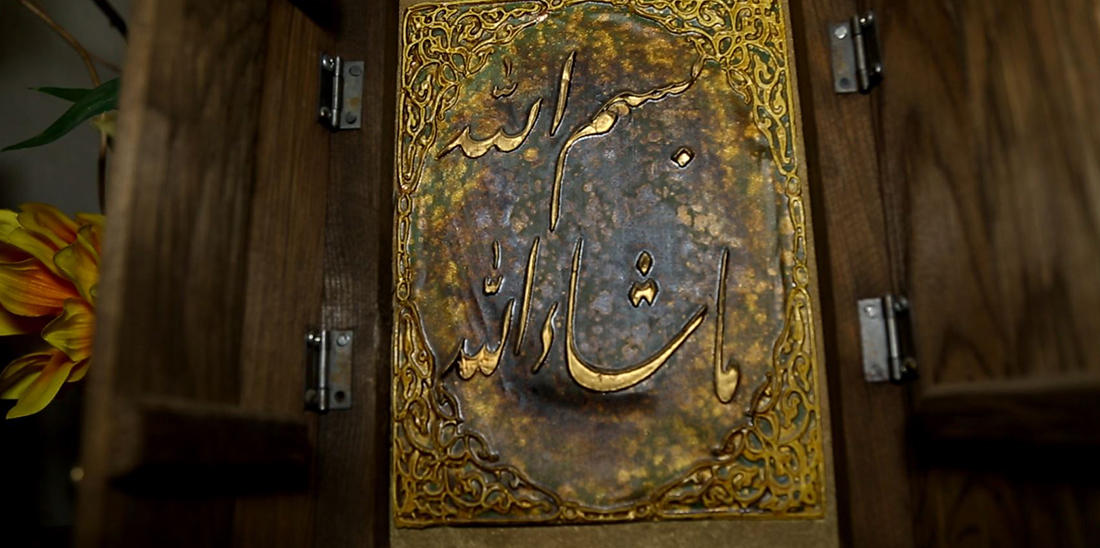 بسم الله
ماشاءالله